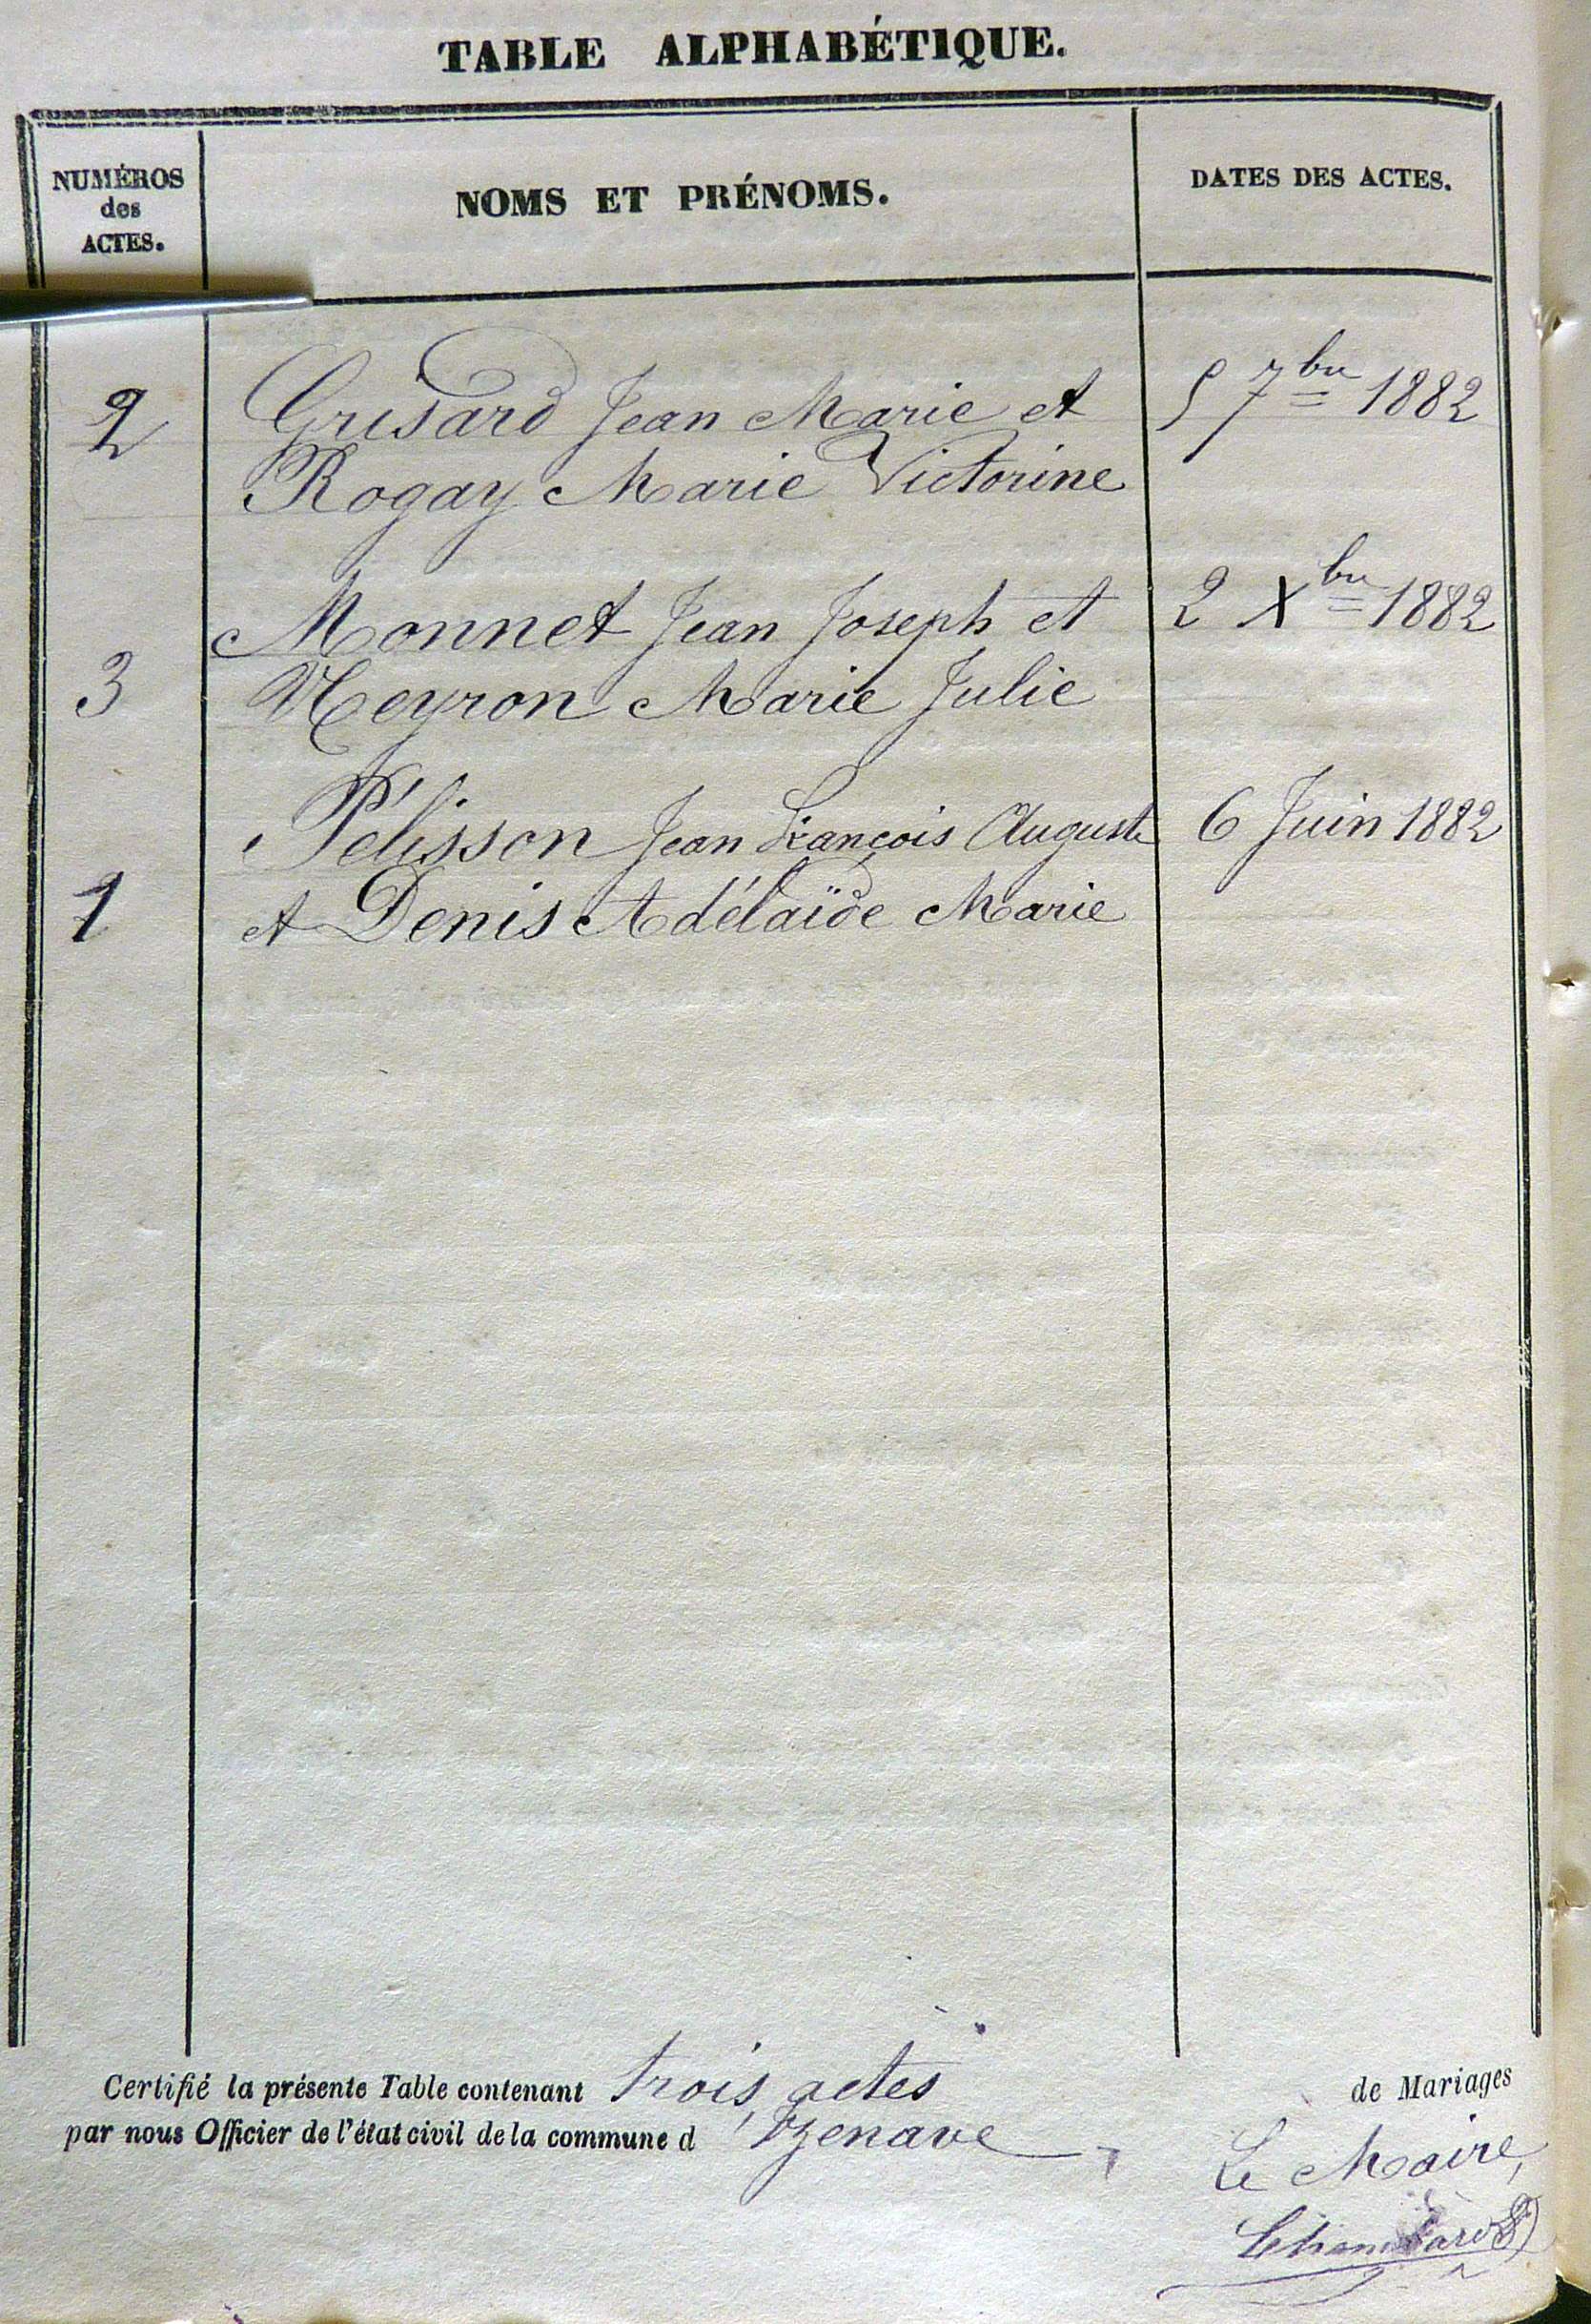 TABLE ALPHABÉTIQUE.
NUMÉROS
des
ACTES.
NOMS ET PRÉNOMS.
DATES DES ACTES.
2 Grisard Jean Marie et 5 7bre 1882
Rogay Marie Victorine
Monnet Jean Joseph et 2 Xbre 1882
3 Neyron Marie Julie
Pélisson Jean François Auguste 6 Juin 1882
1 et Denis Adélaïde Marie
Certifié la présente Table contenant trois actes de Mariages
par nous Officier de l'état civil de la commune d'Izenave
Le Maire,